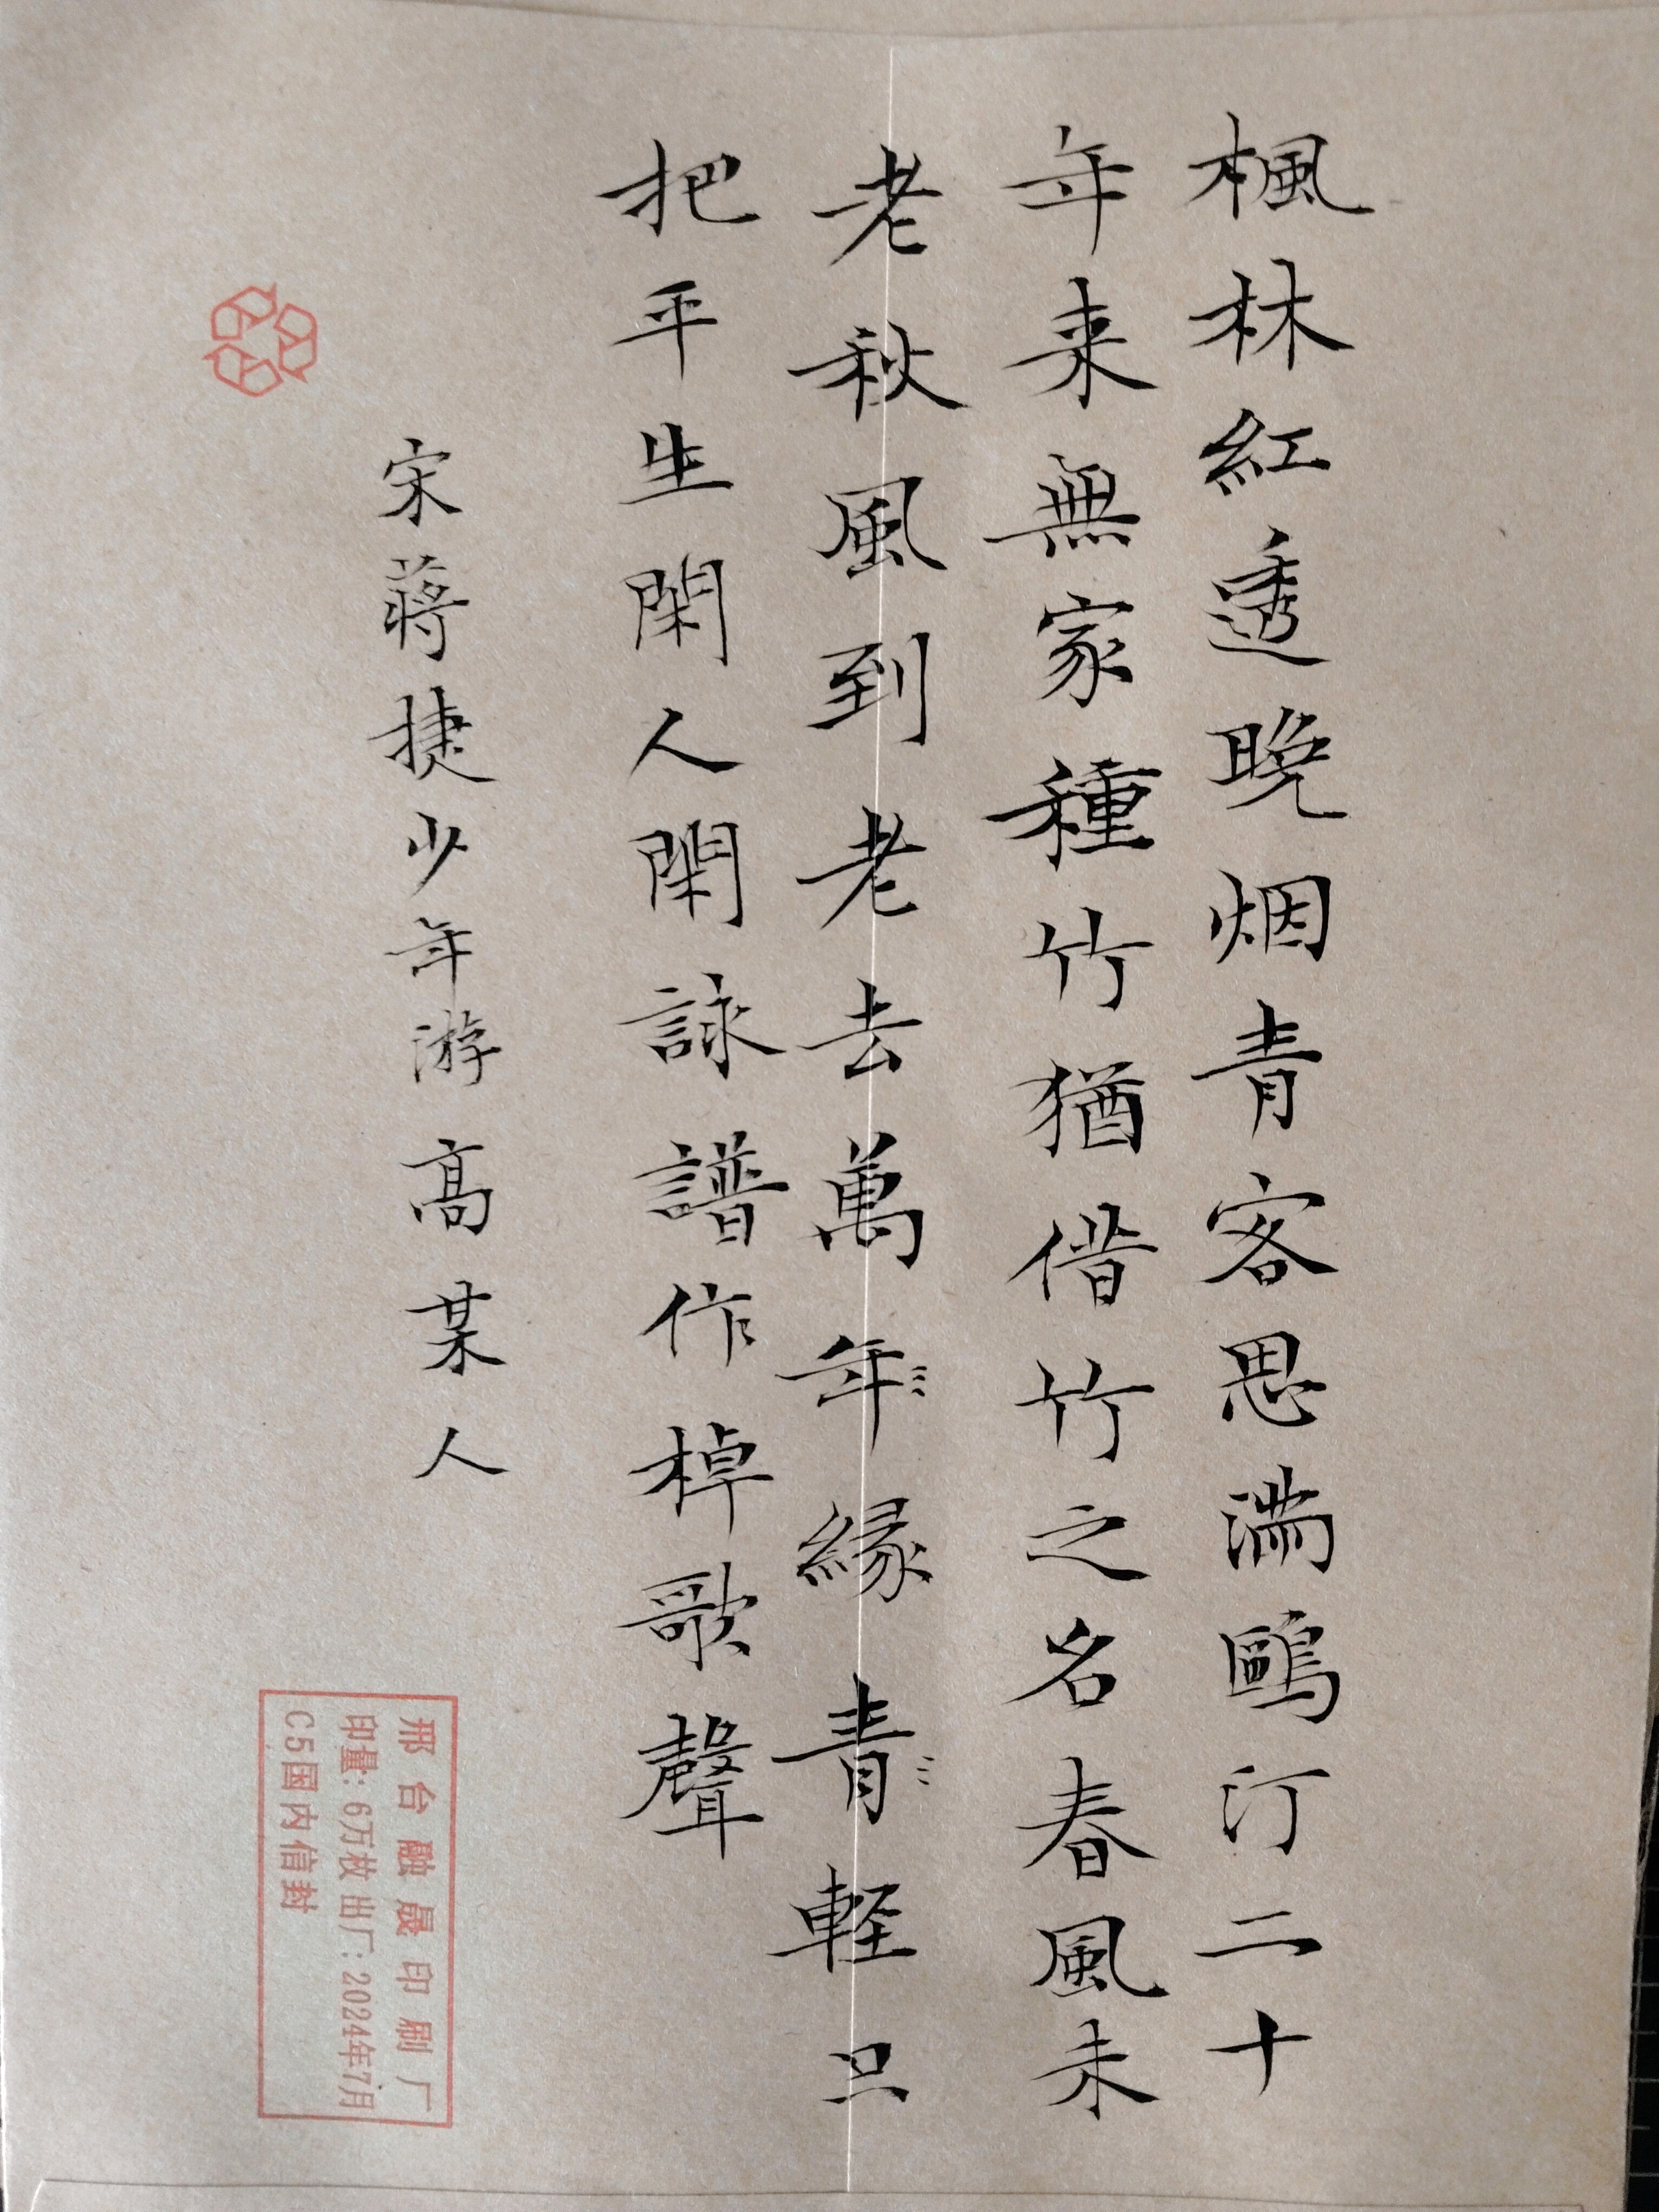 楓林紅透晚烟青客思滿鷗汀二十
年来無家種竹猶借竹之名春風未
老秋風到老去萬年〻緣青〻軽只
把平生閑人閑詠譜作棹歌聲
宋蔣捷少年游高某人
邢台融晟印刷厂
印量：6万枚出厂：2024年7月
C5国内信封